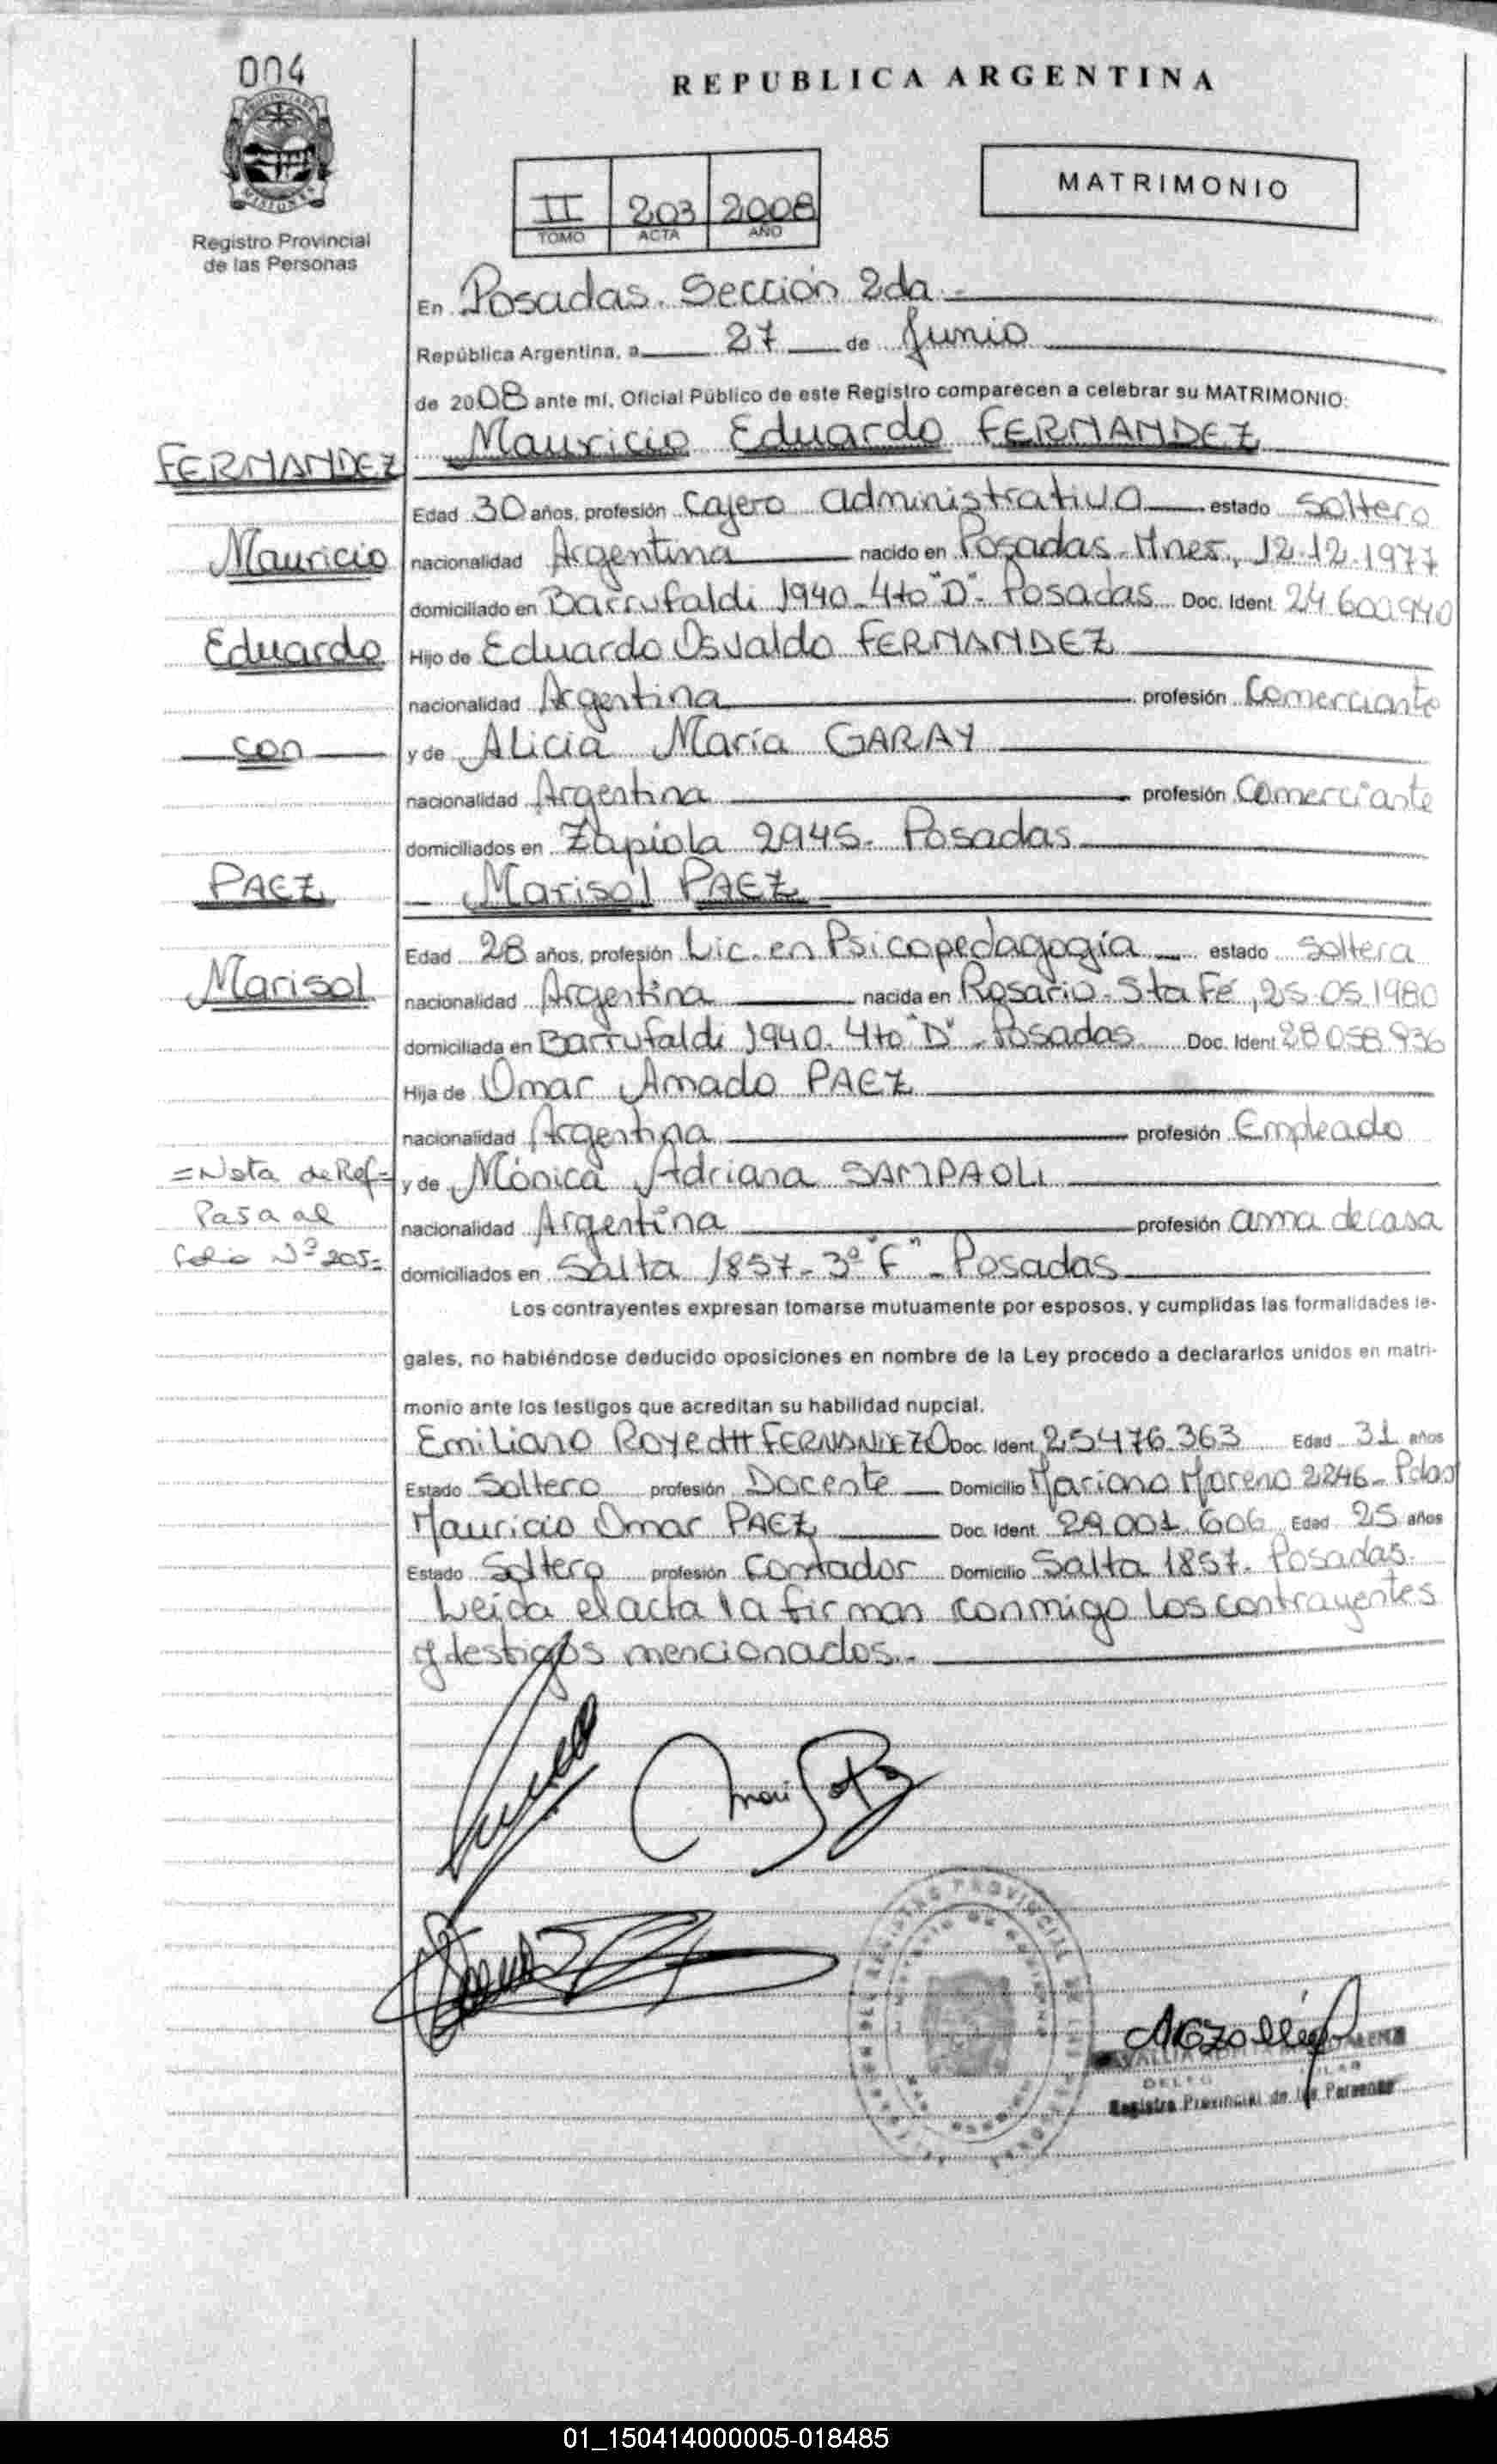 004
REPUBLICA ARGENTINA
Registro Provincial
de las Personas
II 203 2008
TOMO ACTA AÑO
MATRIMONIO
En Posadas. Sección 2da.-
República Argentina, a 27 de Junio
de 2008 ante mí, Oficial Público de este Registro comparecen a celebrar su MATRIMONIO:
Mauricio Eduardo FERNANDEZ
FERNANDEZ
Edad 30 años, profesión Cajero administrativo estado soltero
Mauricio
nacionalidad Argentina nacido en Posadas-Mnes, 12.12.1977
domiciliado en Barrufaldi 1940-4to"D"- Posadas Doc. Ident. 24.600.940
Eduardo
Hijo de Eduardo Osvaldo FERNANDEZ
nacionalidad Argentina profesión Comerciante
con
y de Alicia María GARAY
nacionalidad Argentina profesión Comerciante
domiciliados en Zapiola 2945- Posadas
PAEZ
- Marisol PAEZ
Edad 28 años, profesión Lic. en Psicopedagogía estado Soltera
Marisol
nacionalidad Argentina nacida en Rosario-Sta Fé, 25.05.1980
domiciliada en Barrufaldi 1940. 4to "D"- Posadas Doc. Ident 28.058.936
Hija de Omar Amado PAEZ
nacionalidad Argentina profesión Empleado
=Nota de Ref=
y de Mónica Adriana SAMPAOLI
Pasa al
nacionalidad Argentina profesión ama de casa
Folio Nº 205=
domiciliados en Salta 1857-3º"F"- Posadas
Los contrayentes expresan tomarse mutuamente por esposos, y cumplidas las formalidades le-
gales, no habiéndose deducido oposiciones en nombre de la Ley procedo a declararlos unidos en matri-
monio ante los testigos que acreditan su habilidad nupcial.
Emiliano FERNANDEZ Doc. Ident. 25.476.363 Edad 31 años
Estado Soltero profesión Docente Domicilio Mariano Moreno 2246-Pdas
Mauricio Omar PAEZ Doc. Ident. 29.001.606 Edad 25 años
Estado Soltero profesión Contador Domicilio Salta 1857- Posadas.
Leida el acta la firman conmigo los contrayentes
y testigos mencionados.-
REGISTRO PROVINCIAL DE LAS
Registro Provincial de las Personas
01_150414000005-018485